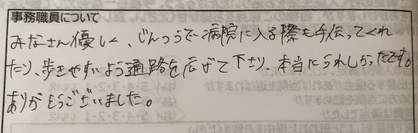 事務職員について
みなさん優しく、じんつうで病院に入る際も手伝ってくれ
たり、歩きやすいよう通路を広げて下さり、本当にうれしかったです。
ありがとうございました。